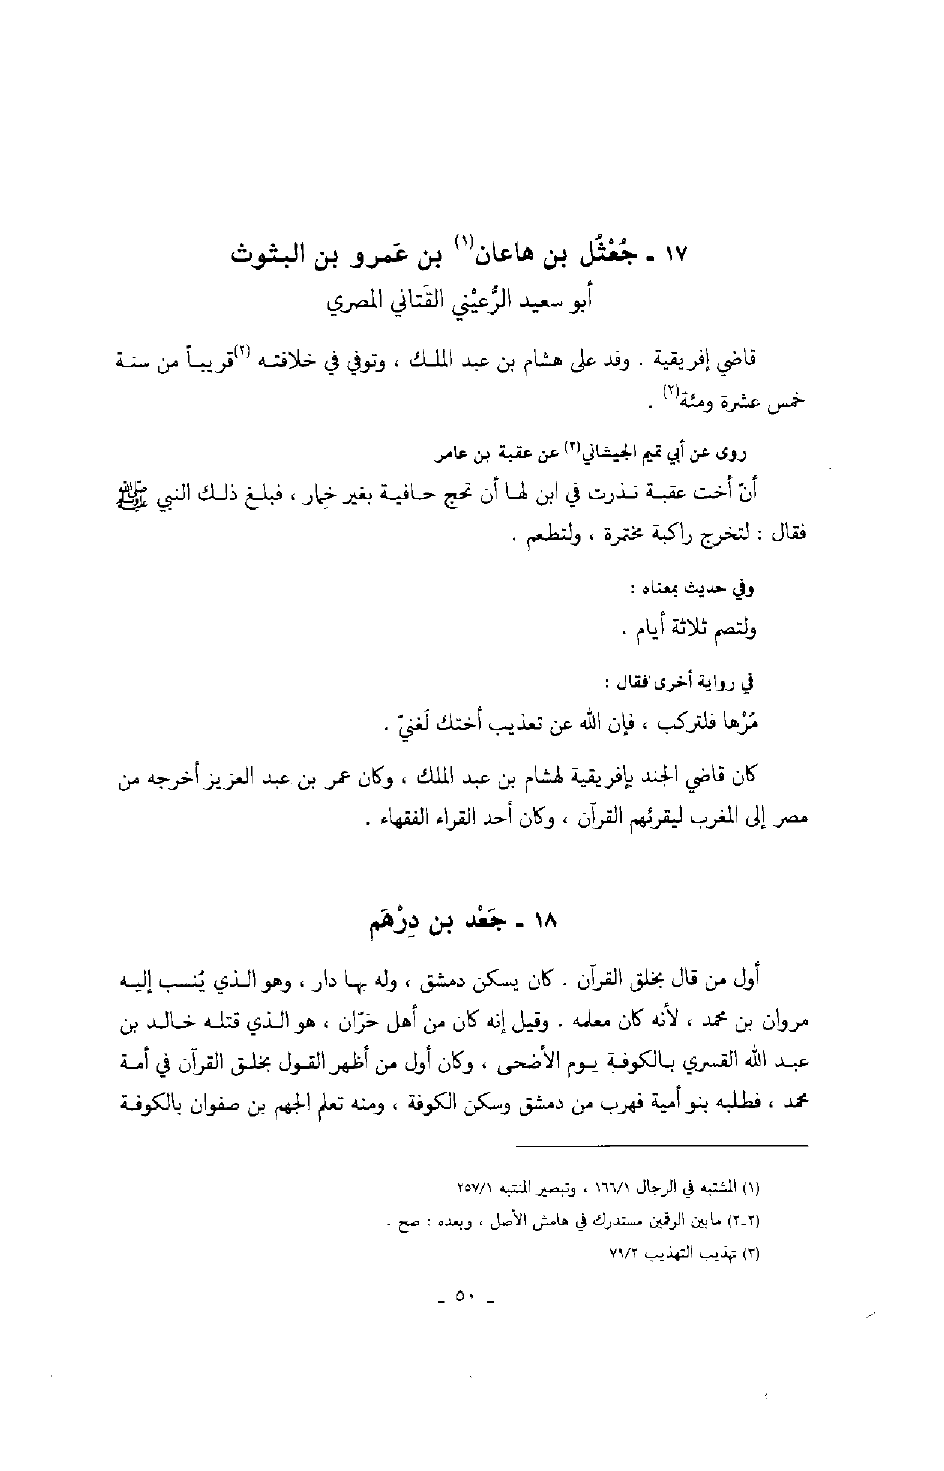 ١٧ ـ جُعْثُل بن هاعان(١) بن عَمرو بن البثوث
أبو سعيد الرُّعيْني القَتاني المصري
قاضي إفريقية . وفد على هشام بن عبد الملك ، وتوفي في خلافته (٢)قريباً من سنة
خمس عشرة ومئة(٢) .
روى عن أبي تميم الجيشاني(٣) عن عقبة بن عامر
أنّ أخت عقبة نذرت في ابن لها أن تحج حافية بغير خمار ، فبلغ ذلك النبي ﷺ
فقال : لتخرج راكبة مختمرة ، ولتطعم .
وفي حديث بمعناه :
ولتصم ثلاثة أيام .
في رواية أخرى فقال :
مُرْها فلتركب ، فإن الله عن تعذيب أختك لَغنيّ .
كان قاضي الجند بإفريقية لهشام بن عبد الملك ، وكان عمر بن عبد العزيز أخرجه من
مصر إلى المغرب ليقرئهم القرآن ، وكان أحد القراء الفقهاء .
١٨ ـ جَعْد بن دِرْهَم
أول من قال بخلق القرآن . كان يسكن دمشق ، وله بها دار ، وهو الذي يُنسب إليه
مروان بن محمد ، لأنه كان معلمه . وقيل إنه كان من أهل حَرّان ، هو الذي قتله خالد بن
عبد الله القسري بالكوفة يوم الأضحى ، وكان أول من أظهر القول بخلق القرآن في أمة
محمد ، فطلبه بنو أمية فهرب من دمشق وسكن الكوفة ، ومنه تعلم الجهم بن صفوان بالكوفة
(١) المشتبه في الرجال ١٦٦/١ ، وتبصير المنتبه ٢٥٧/١
(٢-٢) مابين الرقمين مستدرك في هامش الأصل ، وبعده : صح .
(٣) تهذيب التهذيب ٧٩/٢
ـ ٥٠ ـ